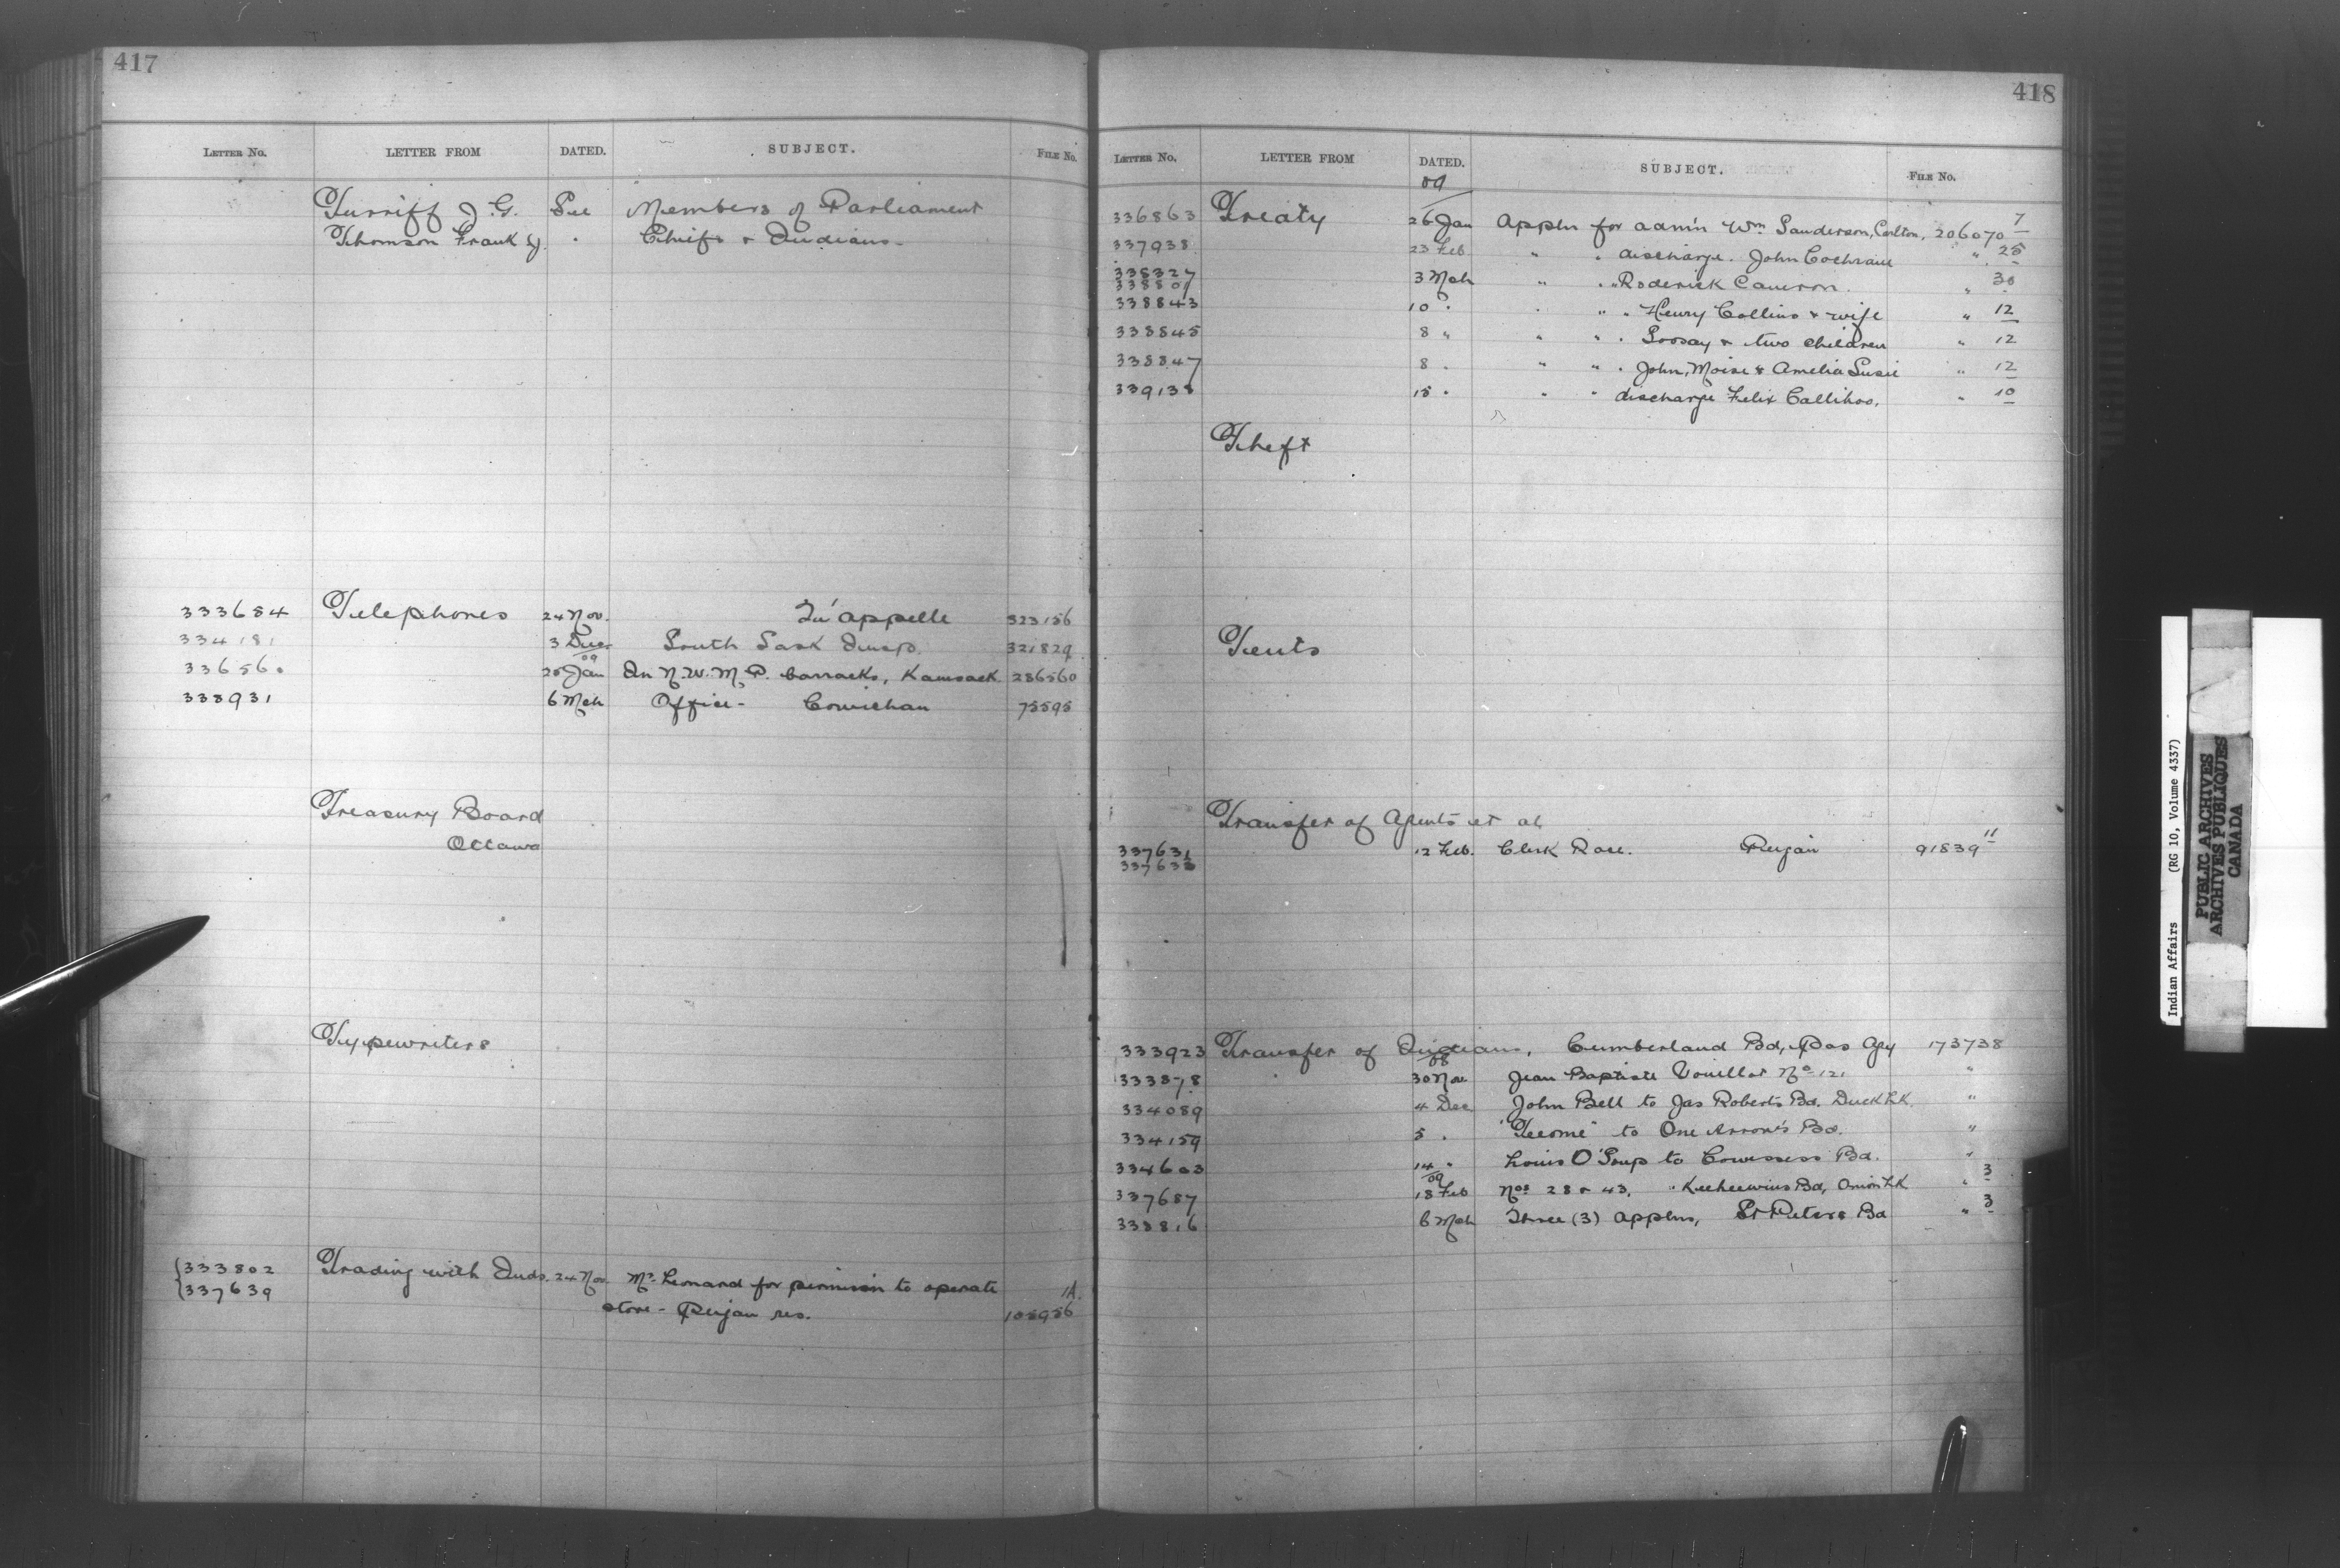 417
LETTER NO. LETTER FROM DATED. SUBJECT. FILE NO.
Turriff J. G. See Members of Parliament
Thomson Frank " Chiefs & Indians
333684 Telephones 24 Nov. Qu'appelle 323156
334181 3 Dec South Sask Insp. 321829
09
336560 25 Jan In N.W.M.P. barracks, Kamsack 286560
338931 6 Mch Office - Cowichan 75595
Treasury Board
Ottawa
Typewriters
333802 Trading with Inds. 24 Nov. Mr. Leonard for permission to operate 1A.
337639 store - Peigan res. 105956
418
LETTER NO. LETTER FROM DATED. SUBJECT. FILE NO.
09
336863 Treaty 26 Jan Appln for adm'n Wm Sanderson, Carlton, 206070 7
337938 23 Feb " " discharge. John Cochrane " 25
338327
338801 3 Mch " " " Roderick Cameron. " 30
338843 10 " " " " Henry Collins & wife " 12
338845 8 " " " " Soosay & two children " 12
338847 8 " " " " John, Moise & Amelia Susie " 12
339138 15 " " " discharge Felix Callihoo. " 10
Theft
Tents
Transfer of Agents et al
337631 12 Feb. Clerk Race. Peigan 91839 11
337633
333923 Transfer of Indians, Cumberland Bd, Pas Agy 173738
08
333878 30 Nov Jean Baptiste Vouillot No 121 "
334089 4 Dec John Bell to Jas Roberts Bd. Duck Lk. "
334159 5 " "Tecome" to One Arrow's Bd. "
334603 14 " Louis O'Soup to Cowessess Bd. "
09
337687 18 Feb Nos 28 & 43, " Keeheewins Bd, Onion Lk " 3
338816 6 Mch Three (3) applns, St Peters Bd " 3
Indian Affairs (RG 10, Volume 4337)
PUBLIC ARCHIVES
ARCHIVES PUBLIQUES
CANADA